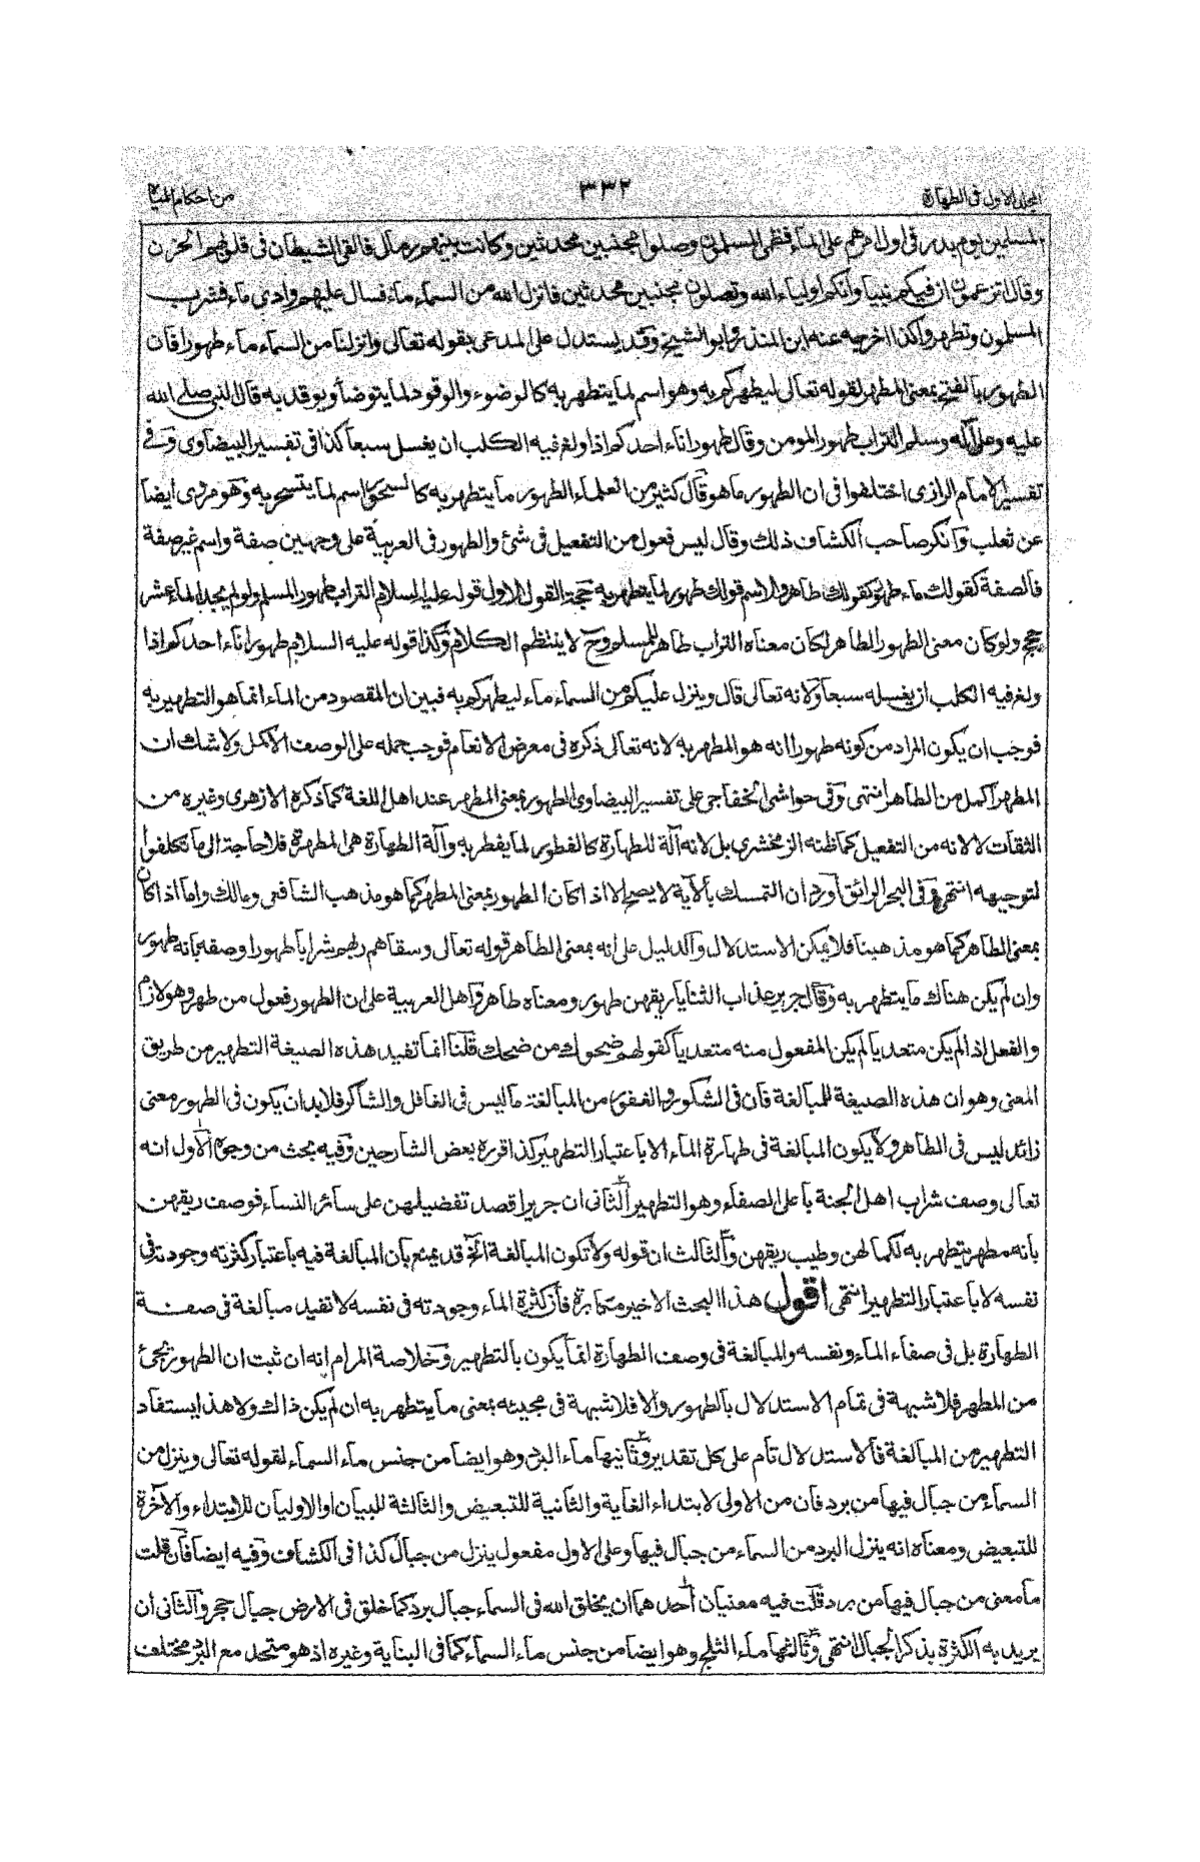 المجلد الاول فى الطهارة
٣٣٢
من احكام المياه
المسلمين يوم بدر فى اول امرهم على الماء فظمى المسلمون وصلوا مجنبين محدثين وكانت بينهم رمال فالقى الشيطان فى قلوبهم الحزن
وقال تزعمون ان فيكم نبيا وانكم اولياء الله وتصلون مجنبين محدثين فانزل الله من السماء ماء فسال عليهم وادى ماء فشرب
المسلمون وتطهروا كذا اخرجه عنه ابن المنذر وابو الشيخ وقد يستدل على المدعى بقوله تعالى وانزلنا من السماء ماء طهورا فان
الطهور بالفتح بمعنى المطهر لقوله تعالى ليطهركم به وهو اسم لما يتطهر به كالوضوء والوقود لما يتوضأ ويوقد به قال النبى صلى الله
عليه وعلى آله وسلم التراب طهور المومن وقال طهور اناء احدكم اذا ولغ فيه الكلب ان يغسل سبعا كذا فى تفسير البيضاوى وفى
تفسير الامام الرازى اختلفوا فى ان الطهور ما هو قال كثير من العلماء الطهور ما يتطهر به كالسحور اسم لما يتسحر به وهو مروى ايضا
عن ثعلب وانكر صاحب الكشاف ذلك وقال ليس فعول من التفعيل فى شئ والطهور فى العربية على وجهين صفة واسم غير صفة
فالصفة كقولك ماء طهور كقولك طاهر والاسم قولك طهور لما يتطهر به حجة القول الاول قوله عليه السلام التراب طهور المسلم ولو لم يجد الماء عشر
حجج ولو كان معنى الطهور الطاهر لكان معناه التراب طاهر للمسلم وح لا ينتظم الكلام وكذا قوله عليه السلام طهور اناء احدكم اذا
ولغ فيه الكلب ان يغسله سبعا ولانه تعالى قال وينزل عليكم من السماء ماء ليطهركم به فبين ان المقصود من الماء انما هو التطهير به
فوجب ان يكون المراد من كونه طهورا انه هو المطهر به لانه تعالى ذكره فى معرض الانعام فوجب حمله على الوصف الاكمل ولا شك ان
المطهر اكمل من الطاهر انتهى وفى حواشى الخفاجى على تفسير البيضاوى الطهور بمعنى المطهر عند اهل اللغة كما ذكره الازهرى وغيره من
الثقات لا لانه من التفعيل كما ظنه الزمخشرى بل لانه آلة للطهارة كالفطور لما يفطر به وآلة الطهارة هى المطهرة فلا حاجة الى ما تكلفوا
لتوجيهه انتهى وفى البحر الرائق اورد ان التمسك بالآية لا يصح الا اذا كان الطهور بمعنى المطهر كما هو مذهب الشافعى ومالك واما اذا كان
بمعنى الطاهر كما هو مذهبنا فلا يمكن الاستدلال والدليل على انه بمعنى الطاهر قوله تعالى وسقاهم ربهم شرابا طهورا وصفه بانه طهور
وان لم يكن هناك ما يتطهر به وقال جرير عذاب الثنايا ريقهن طهور ومعناه طاهر واهل العربية على ان الطهور فعول من طهر وهو لازم
والفعل اذا لم يكن متعديا لم يكن المفعول منه متعديا كقولهم ضحوك من ضحك قلنا انما تفيد هذه الصيغة التطهير من طريق
المعنى وهو ان هذه الصيغة للمبالغة فان فى الشكور والغفور من المبالغة ما ليس فى الغافل والشاكر فلا بد ان يكون فى الطهور معنى
زائد ليس فى الطاهر ولا يكون المبالغة فى طهارة الماء الا باعتبار التطهير كذا قرره بعض الشارحين وفيه بحث من وجوه الاول انه
تعالى وصف شراب اهل الجنة باعلى الصفاء وهو التطهير الثانى ان جريرا قصد تفضيلهن على سائر النساء فوصف ريقهن
بانه مطهر يتطهر به لكمالهن وطيب ريقهن والثالث ان قوله ولا تكون المبالغة الخ قد يمنع بان المبالغة فيه باعتبار كثرته وجودته فى
نفسه لا باعتبار التطهير انتهى اقول هذا البحث الاخير مكابرة فان كثرة الماء وجودته فى نفسه لا تفيد مبالغة فى صفة
الطهارة بل فى صفاء الماء ونفسه والمبالغة فى وصف الطهارة انما يكون بالتطهير وخلاصة المرام انه ان ثبت ان الطهور يجئ
من المطهر فلا شبهة فى تمام الاستدلال بالطهور والا فلا شبهة فى مجيئه بمعنى ما يتطهر به ان لم يكن ذاك ولا هذا يستفاد
التطهير من المبالغة فالاستدلال تام على كل تقدير وثانيها ماء البرد وهو ايضا من جنس ماء السماء لقوله تعالى وينزل من
السماء من جبال فيها من برد فان من الاولى لابتداء الغاية والثانية للتبعيض والثالثة للبيان او الاوليان للابتداء والآخرة
للتبعيض ومعناه انه ينزل البرد من السماء من جبال فيها وعلى الاول مفعول ينزل من جبال كذا فى الكشاف وفيه ايضا فان قلت
ما معنى من جبال فيها من برد قلت فيه معنيان احدهما ان يخلق الله فى السماء جبال برد كما خلق فى الارض جبال حجر والثانى ان
يريد به الكثرة بذكر الجبال انتهى وثالثها ماء الثلج وهو ايضا من جنس ماء السماء كما فى البناية وغيره اذ هو متحد مع البرد مختلف